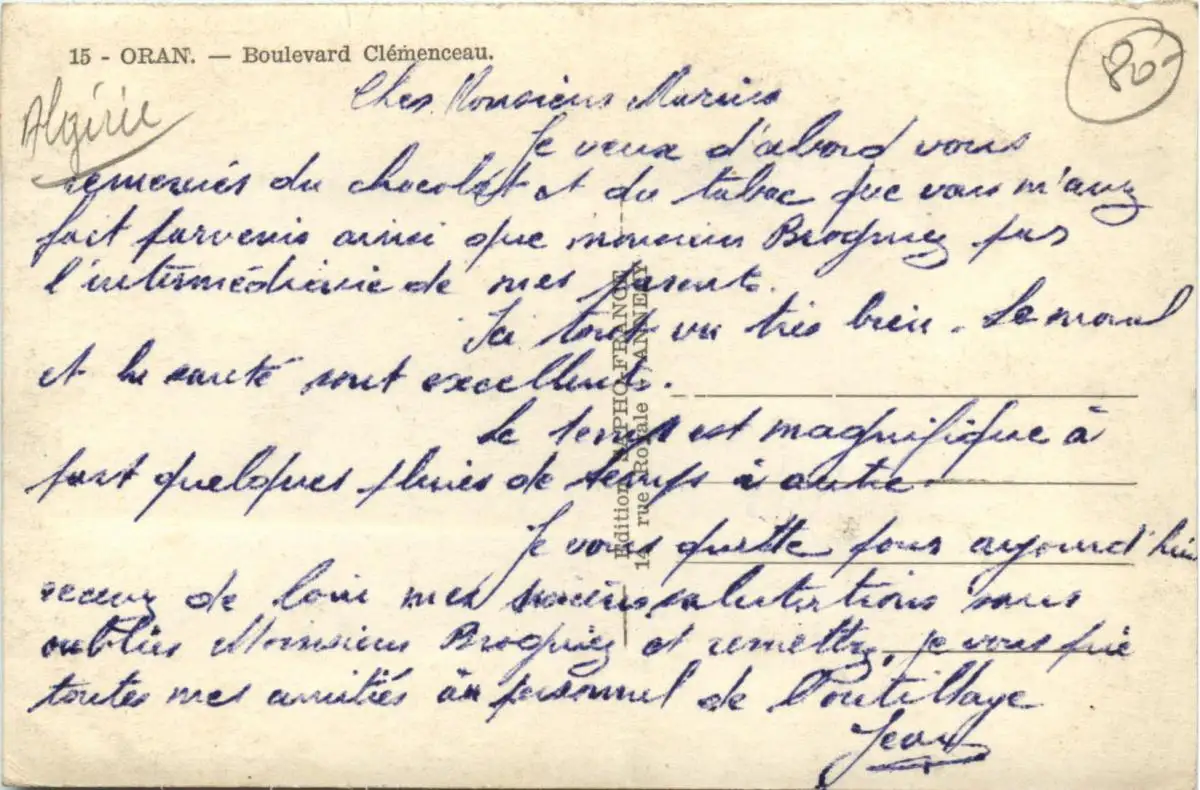 15 - ORAN. — Boulevard Clémenceau.
80-
Algérie
Cher Monsieur Marius
Je veux d'abord vous
remercier du chocolat et du tabac que vous m'avez
fait parvenir ainsi que monsieur Broquiez par
l'intermédiaire de mes parents.
Ici tout va très bien. Le moral
et la santé sont excellents.
Le temps est magnifique à
part quelques pluies de temps à autre.
Je vous quitte pour aujourd'hui
recevez de loin mes sincères salutations sans
oublier Monsieur Broquiez et remettez, je vous prie
toutes mes amitiés au personnel de l'outillage
Jean
Edition SAPHO-FRANCE
14 rue Royale, ANNECY